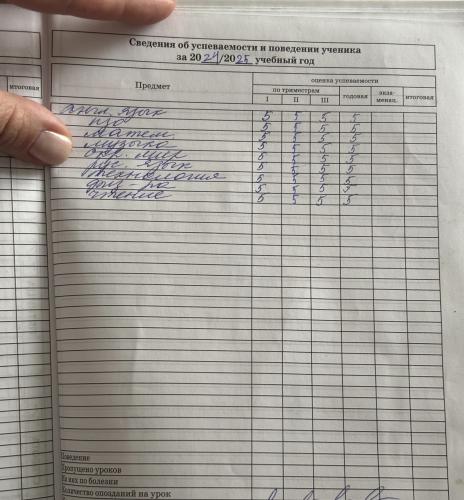 Сведения об успеваемости и поведении ученика
за 2024/2025 учебный год
итоговая
Предмет
оценка успеваемости
по триместрам
I II III
годовая
экза-
менац.
итоговая
Англ. язык 5 5 5 5
ИЗО 5 5 5 5
матем 5 5 5 5
музыка 5 5 5 5
окр. мир 5 5 5 5
рус. язык 5 5 5 5
технология 5 5 5 5
физ-ра 5 5 5 5
чтение 5 5 5 5
Поведение
Пропущено уроков
Из них по болезни
Количество опозданий на урок